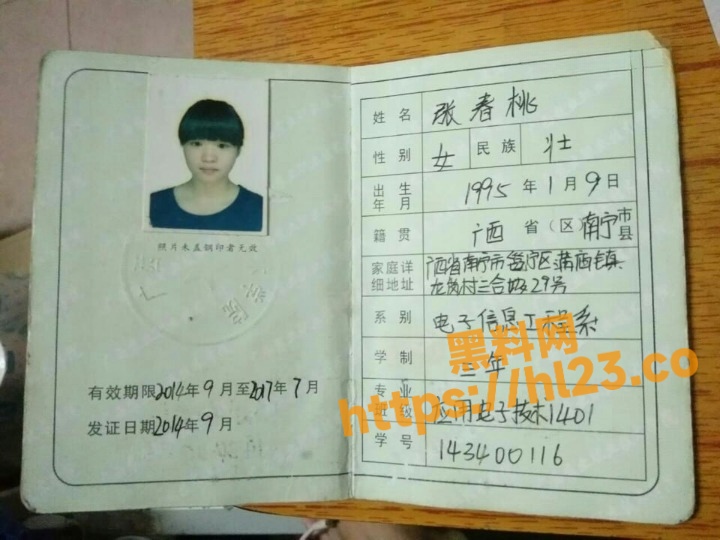 照片未盖钢印者无效
有效期限2014年9月至2017年7月
发证日期2014年9月
姓名 张春桃
性别 女 民族 壮
出生年月 1995年1月9日
籍贯 广西省(区)南宁市县
家庭详细地址 广西省南宁市邕宁区蒲庙镇
龙岗村三合坡29号
系别 电子信息工程系
学制 三年
专业班级 应用电子技术1401
学号 143400116
黑料网
https://hl23.co